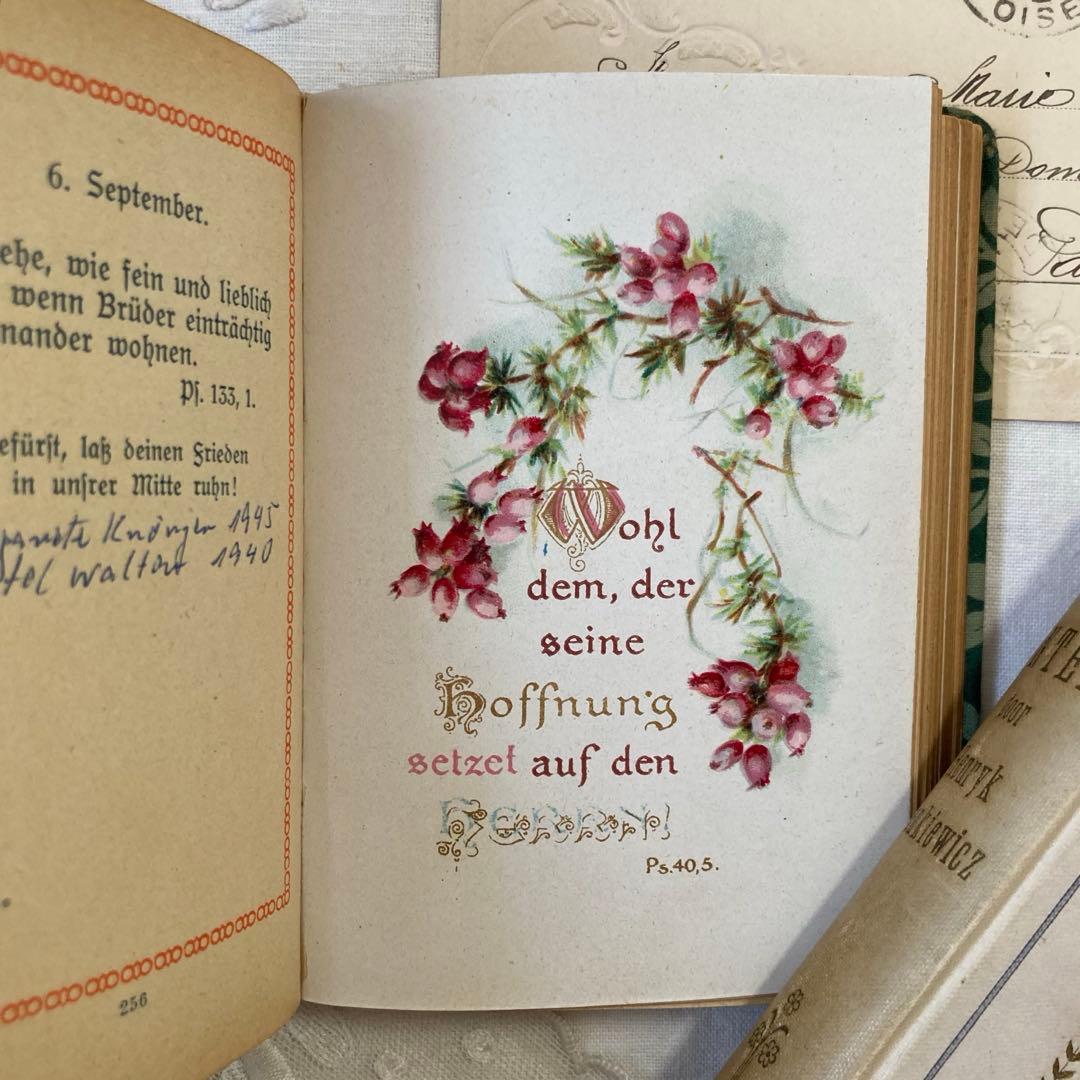 6. September.
ehe, wie fein und lieblich
wenn Brüder einträchtig
nander wohnen.
Pſ. 133, 1.
efürſt, laß deinen Frieden
in unſrer Mitte ruhn!
1945
1940
256
Wohl
dem, der
seine
Hoffnung
setzet auf den
HERRN!
Ps. 40,5.
OISE
Marie
Dom
door
kiewicz